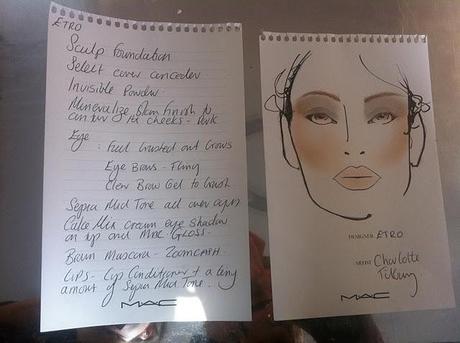 ETRO
Sculp Foundation
Select cover concealer
Invisible Powder
Mineralize Skin Finish to
contour + Hi cheeks - Perk
Eye
: Fuel crushed out Brows
Eye Brows - Fling
Clear Brow Gel to brush
Sepia Mid Tone all over eyes
Cake Mix cream eye shadow
on top and Mac GLOSS -
Brown Mascara - ZOOMLASH
Lips - Lip Conditioner + a tiny
amount of Sepia Mid Tone.
MAC
DESIGNER ETRO
ARTIST Charlotte
Tilbury
MAC